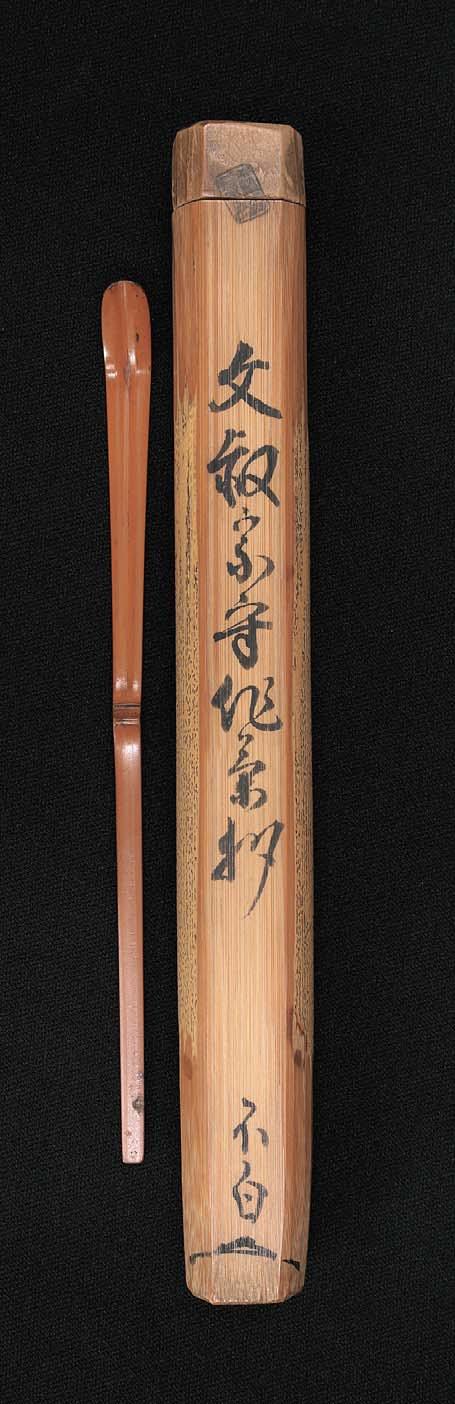 文叔宗守作茶杓
不白